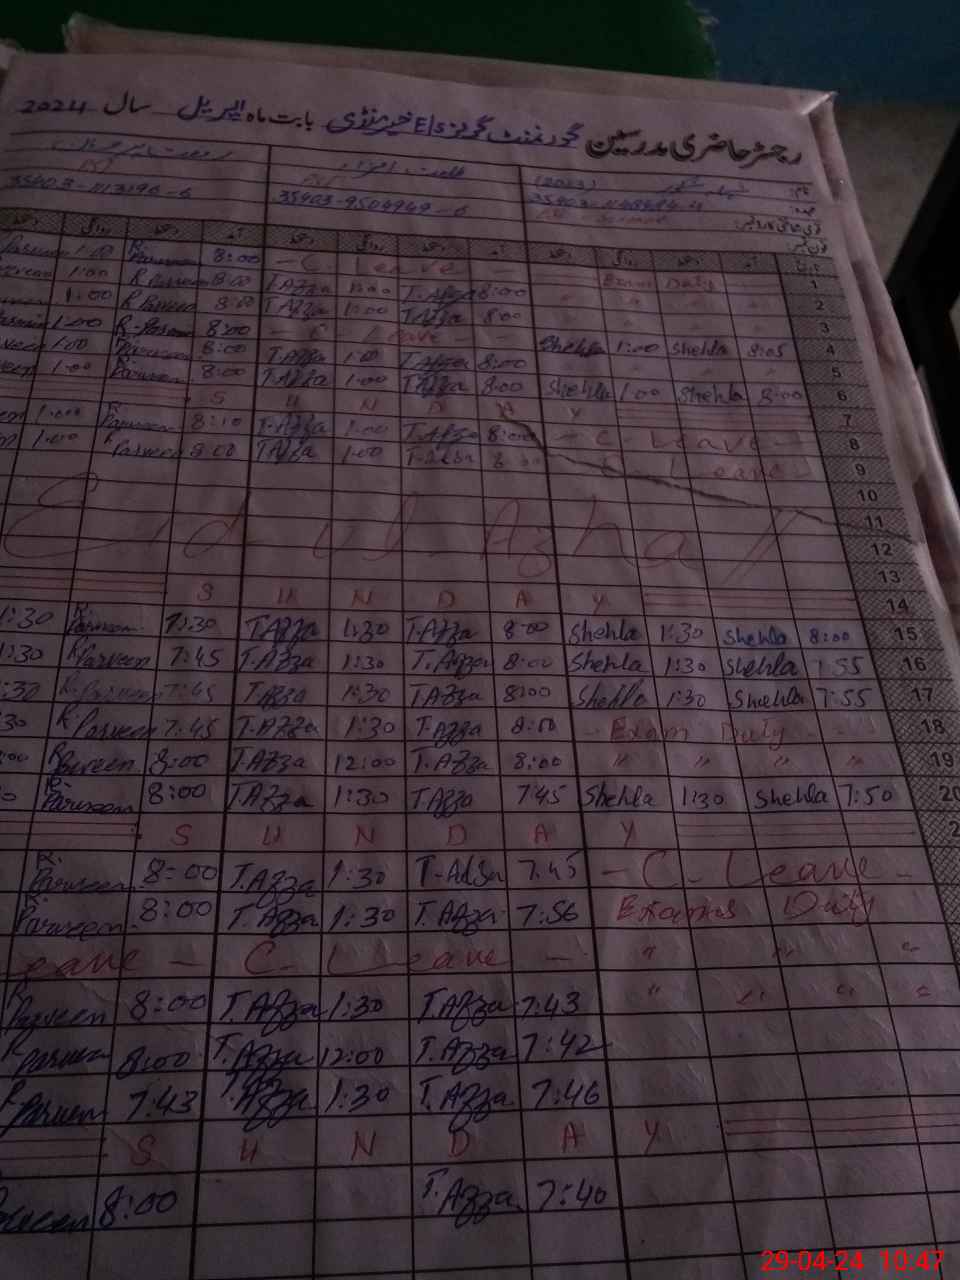 رجسٹر حاضری مدرسین گورنمنٹ گرلز E/S خیر منڈی بابت ماہ اپریل سال 2024
35403-9504949-6
روانگی آمد روانگی
Parveen 1:00 R. Parveen 8:00 - C. Leave - Exam Duty 1
1:00 R Parveen 8:00 T.Azza 1:00 T.Azza 8:00 " " " " 2
1:00 R Parveen 8:00 T.Azza 1:00 T.Azza 8:00 3
1:00 R. Parveen 8:00 - C Leave - Shehla 1:00 Shehla 8:05 4
1:00 Parveen 8:00 T.Azza 1:00 T.Azza 8:00 5
1:00 Parveen 8:00 T.Azza 1:00 T.Azza 8:00 Shehla 1:00 Shehla 8:00 6
S U N D A Y 7
1:00 R. Parveen 8:10 T.Azza 1:00 T.Azza 8:00 - C. Leave - 8
1:00 R Parveen 8:00 T.Azza 1:00 T.Azza 8:00 C. Leave 9
10
Eid ul Azha 11
12
13
S U N D A Y 14
1:30 R. Parveen 7:30 T.Azza 1:30 T.Azza 8:00 Shehla 1:30 Shehla 8:00 15
1:30 R Parveen 7:45 T.Azza 1:30 T.Azza 8:00 Shehla 1:30 Shehla 7:55 16
:30 R. Parveen 7:45 T.Azza 1:30 T.Azza 8:00 Shehla 1:30 Shehla 7:55 17
:30 R Parveen 7:45 T.Azza 1:30 T.Azza 8:00 - Exam Duty - 18
:00 R Parveen 8:00 T.Azza 12:00 T.Azza 8:00 " " " " 19
R. Parveen 8:00 T.Azza 1:30 T.Azza 7:45 Shehla 1:30 Shehla 7:50 20
S U N D A Y 2
R. Parveen 8:00 T.Azza 1:30 T.Azza 7:45 - C. Leave -
R. Parveen 8:00 T.Azza 1:30 T.Azza 7:56 Exams Duty
eave - C. Leave - " " "
R Parveen 8:00 T.Azza 1:30 T.Azza 7:43 " " " "
R Parveen 8:00 T.Azza 12:00 T.Azza 7:42
R Parveen 7:43 T.Azza 1:30 T.Azza 7:46
S U N D A Y
Parveen 8:00 T.Azza 7:40
29-04-24 10:47